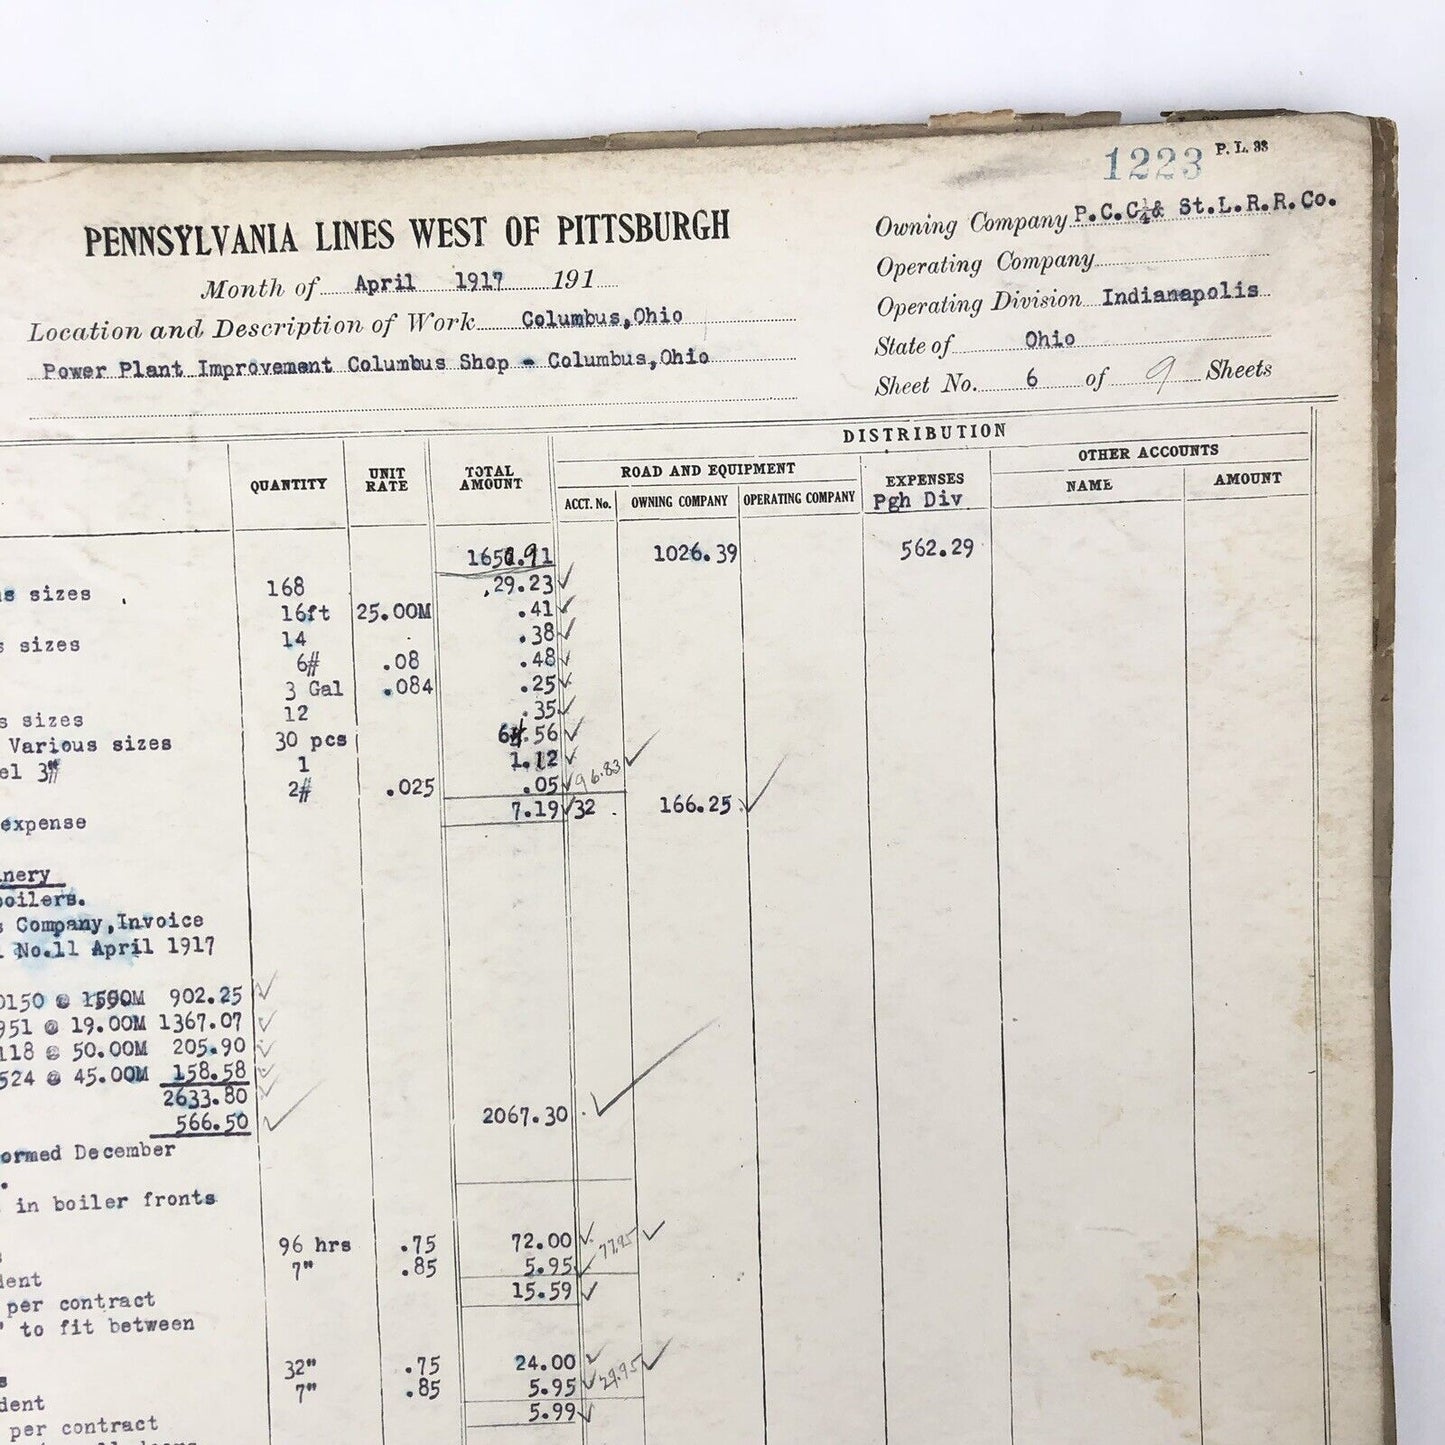 1223 P. L. 33
PENNSYLVANIA LINES WEST OF PITTSBURGH
Month of April 1917 191
Location and Description of Work Columbus,Ohio
Power Plant Improvement Columbus Shop - Columbus,Ohio
Owning Company P.C.C. & St.L.R.R.Co.
Operating Company
Operating Division Indianapolis
State of Ohio
Sheet No. 6 of 9 Sheets
DISTRIBUTION
QUANTITY UNIT RATE TOTAL AMOUNT ROAD AND EQUIPMENT EXPENSES OTHER ACCOUNTS
ACCT. No. OWNING COMPANY OPERATING COMPANY Pgh Div NAME AMOUNT
1026.39 562.29
sizes 168 29.23
16ft 25.00M .41
sizes 14 .38
6# .08 .48
3 Gal .084 .25
s sizes 12 .35
Various sizes 30 pcs .56
el 3" 1 1.12
2# .025 .05 96.83
expense 7.19 32 166.25
nery
boilers.
s Company,Invoice
No.11 April 1917
0150 @ M 902.25
951 @ 19.00M 1367.07
118 @ 50.00M 205.90
524 @ 45.00M 158.58
2633.80
566.50 2067.30
ormed December
in boiler fronts
96 hrs .75 72.00 77.95
dent 7" .85 5.95
per contract 15.59
" to fit between
s 32" .75 24.00
dent 7" .85 5.95 29.95
per contract 5.99